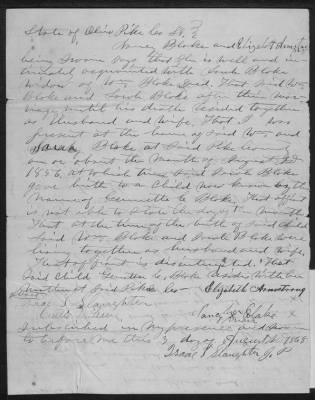 State of Ohio Pike Co SS
Nancy Bloke and Elizabeth Armstrong
being sworn say that she is well and in-
timately acquainted with Sarah Bloke
widow of Wm Bloke Decd. That said Wm
Bloke and Sarah Bloke after their mar-
riage until his death resided together
as Husband and Wife. That I was
present at the home of said Wm and
Sarah Bloke at said Pike County
on or about the Month of August
1856, at which time said Sarah Bloke
gave birth to a Child now known by the
Name of C. Bloke. That affiant
is not able to State the day of the Month
That at the time of the birth of said Child
said Wm Bloke and Sarah Bloke were
living together as husband and Wife.
That affiant is disinterested. That
said Child C. Bloke resides with her
Mother at said Pike Co
Elizabeth Armstrong
Attest
Isaac S Slaughter
Nancy Blake
Subscribed in My presence and sworn
to before me this 3 day of August 1865
Isaac S Slaughter J. P.